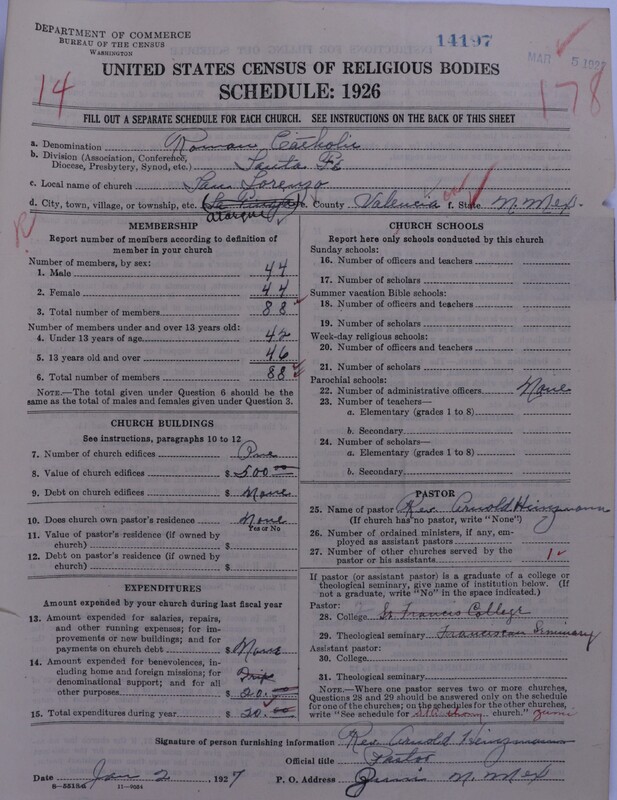 DEPARTMENT OF COMMERCE
BUREAU OF THE CENSUS
WASHINGTON
14197
MAR 5 192
14
178
UNITED STATES CENSUS OF RELIGIOUS BODIES
SCHEDULE: 1926
FILL OUT A SEPARATE SCHEDULE FOR EACH CHURCH. SEE INSTRUCTIONS ON THE BACK OF THIS SHEET
a. Denomination Roman Catholic
b. Division (Association, Conference, Diocese, Presbytery, Synod, etc.) Santa Fe
c. Local name of church San Lorenzo
d. City, town, village, or township, etc. Atarque e. County Valencia f. State N. Mex.
MEMBERSHIP
Report number of members according to definition of
member in your church
Number of members, by sex:
1. Male 44
2. Female 44
3. Total number of members 88
Number of members under and over 13 years old:
4. Under 13 years of age 42
5. 13 years old and over 46
6. Total number of members 88
NOTE.—The total given under Question 6 should be the
same as the total of males and females given under Question 3.
CHURCH BUILDINGS
See instructions, paragraphs 10 to 12
7. Number of church edifices One
8. Value of church edifices $ 500.00
9. Debt on church edifices $ None
10. Does church own pastor's residence None
Yes or No
11. Value of pastor's residence (if owned by
church) $
12. Debt on pastor's residence (if owned by
church) $
EXPENDITURES
Amount expended by your church during last fiscal year
13. Amount expended for salaries, repairs,
and other running expenses; for im-
provements or new buildings; and for
payments on church debt $ None
14. Amount expended for benevolences, in-
cluding home and foreign missions; for
denominational support; and for all
other purposes $ 20.00
15. Total expenditures during year $ 20.00
CHURCH SCHOOLS
Report here only schools conducted by this church
Sunday schools:
16. Number of officers and teachers
17. Number of scholars
Summer vacation Bible schools:
18. Number of officers and teachers
19. Number of scholars
Week-day religious schools:
20. Number of officers and teachers
21. Number of scholars
Parochial schools:
22. Number of administrative officers None
23. Number of teachers—
a. Elementary (grades 1 to 8)
b. Secondary
24. Number of scholars—
a. Elementary (grades 1 to 8)
b. Secondary
PASTOR
25. Name of pastor Rev. Arnold Heinzmann
(If church has no pastor, write "None")
26. Number of ordained ministers, if any, em-
ployed as assistant pastors
27. Number of other churches served by the
pastor or his assistants
If pastor (or assistant pastor) is a graduate of a college or
theological seminary, give name of institution below. (If
not a graduate, write "No" in the space indicated.)
Pastor:
28. College St. Francis College
29. Theological seminary Franciscan Seminary
Assistant pastor:
30. College
31. Theological seminary
NOTE.—Where one pastor serves two or more churches,
Questions 28 and 29 should be answered only on the schedule
for one of the churches; on the schedules for the other churches,
write "See schedule for St. Anthony church." Zuni
Signature of person furnishing information Rev. Arnold Heinzmann
Official title Pastor
Date Jan 2, 1927 P. O. Address Zuni N. Mex
8-5318a 11-9024